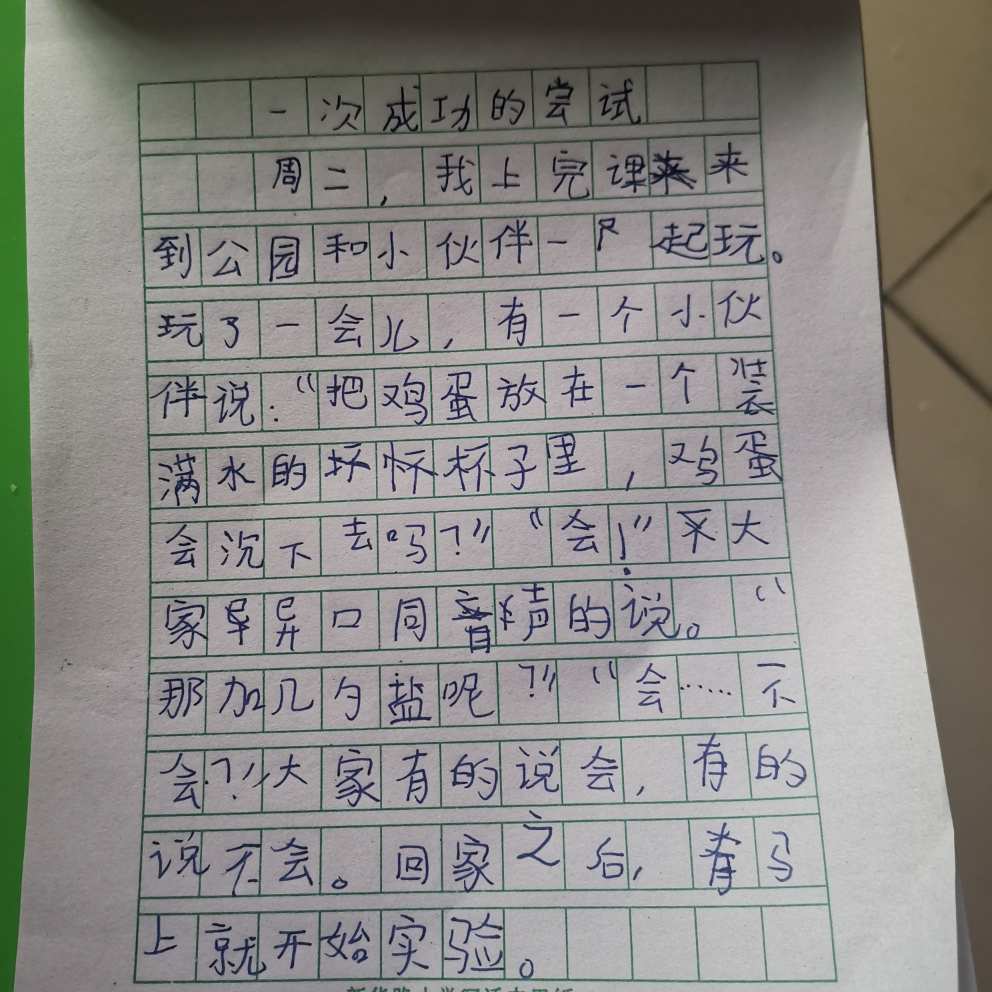 一次成功的尝试
周二，我上完课来
到公园和小伙伴一起玩。
玩了一会儿，有一个小伙
伴说：“把鸡蛋放在一个装
满水的坏怀杯子里，鸡蛋
会沉下去吗？”“会！”大
家异口同声的说。“
那加几勺盐呢？”“会……不
会？”大家有的说会，有的
说不会。回家之后，马
上就开始实验。